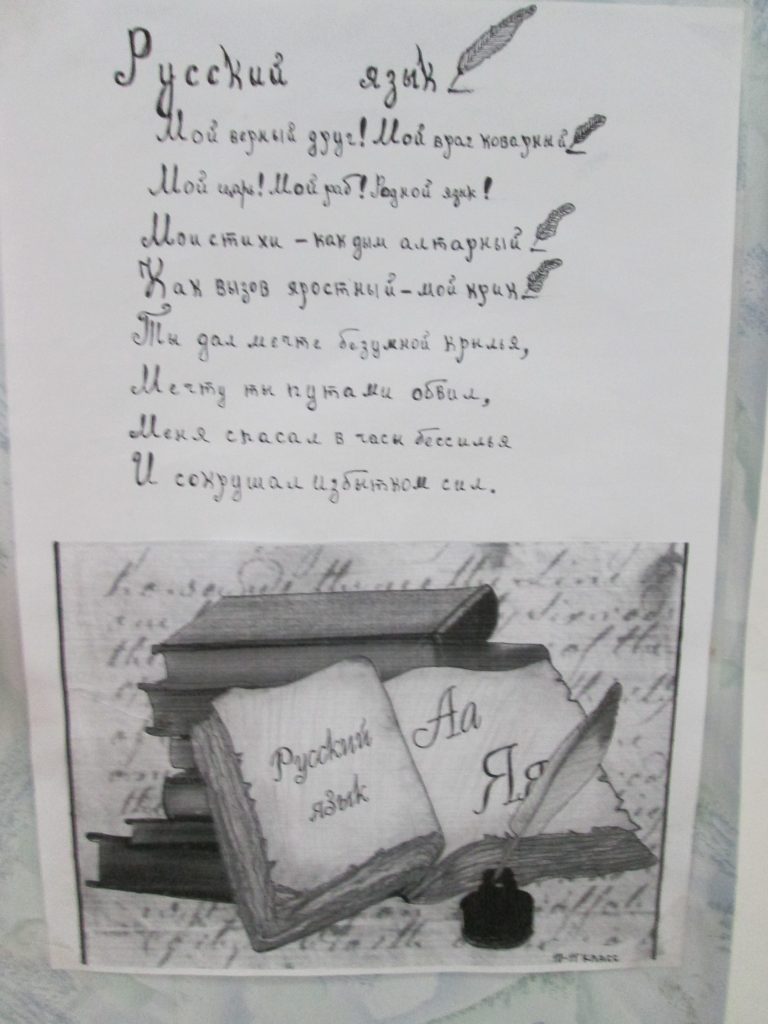 Русский язык
Мой верный друг! Мой враг коварный
Мой царь! Мой раб! Родной язык!
Мои стихи – как дым алтарный
Как вызов яростный – мой крик
Ты дал мечте безумной крылья,
Мечту ты путами обвил,
Меня спасал в часы бессилья
И сокрушал избытком сил.
Русский
язык
Аа
Яя
10-11 класс